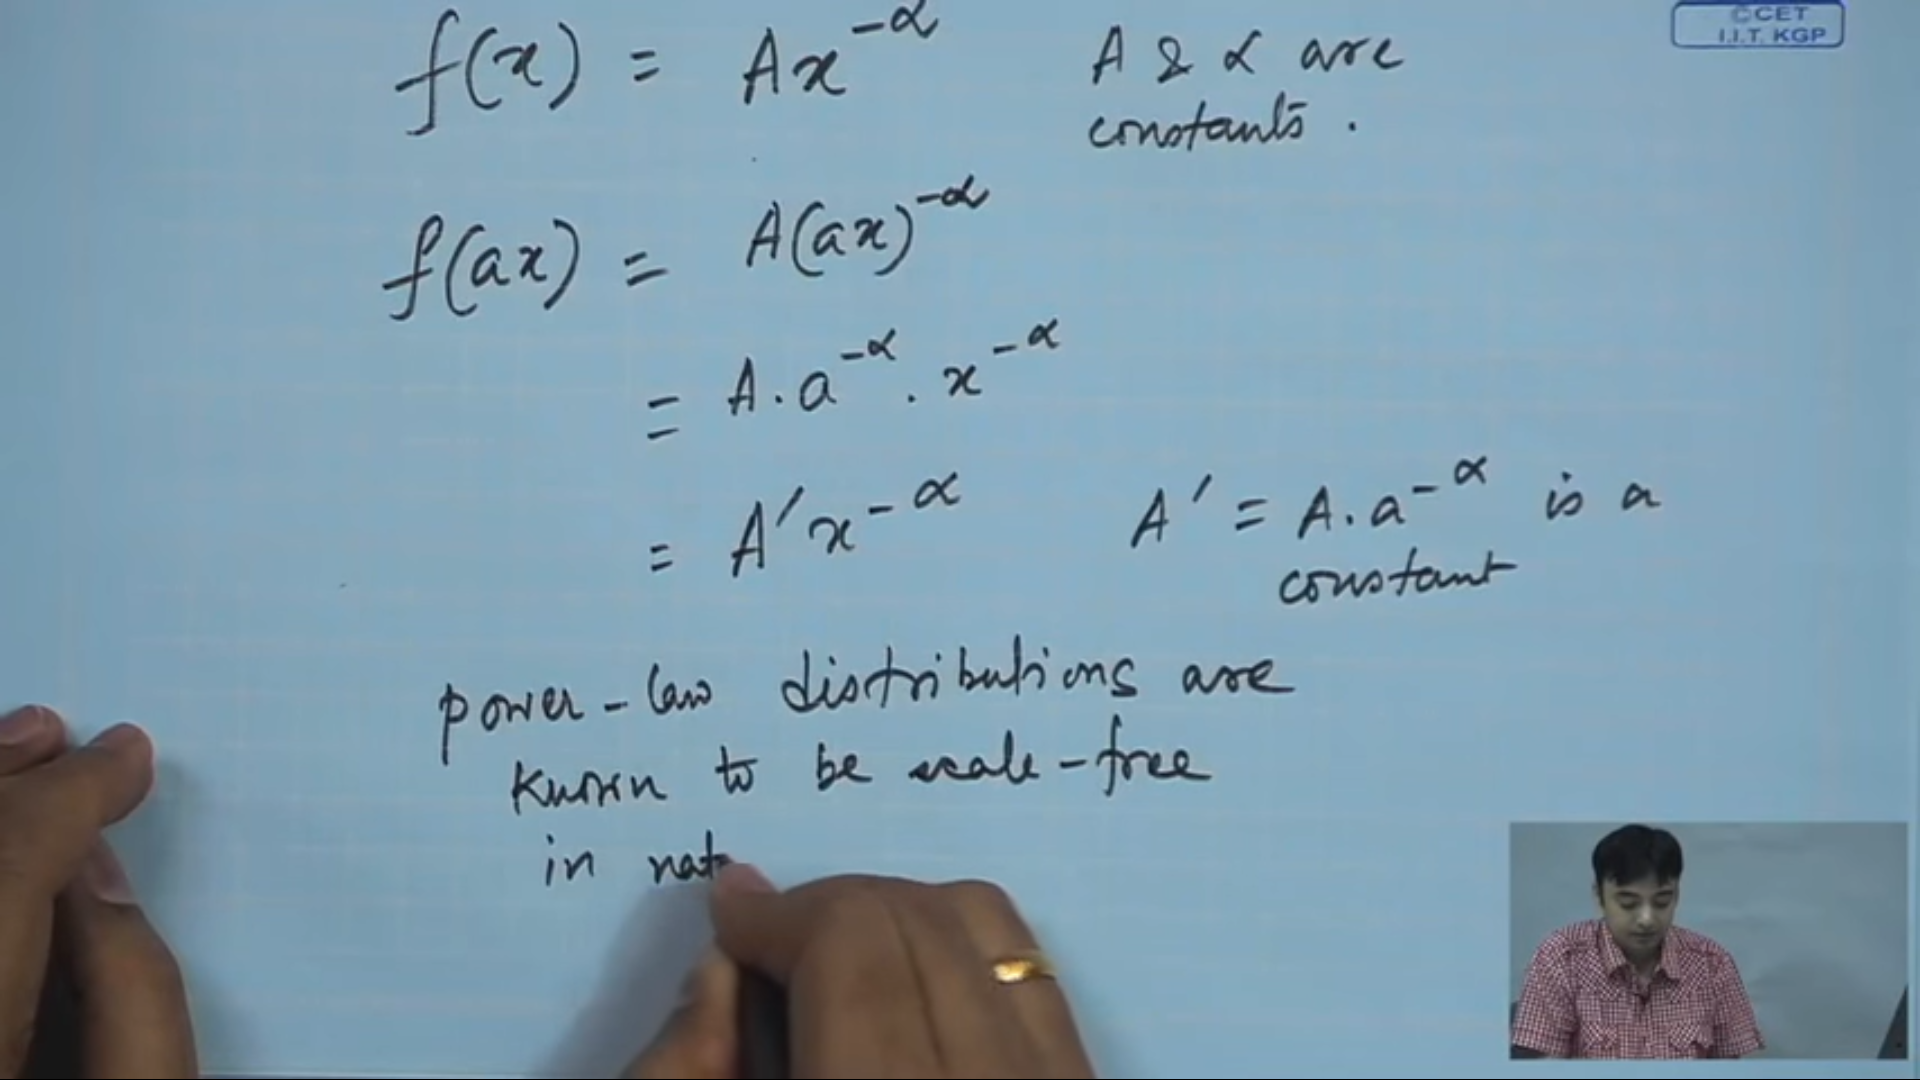 ©CET
I.I.T. KGP
f(x) = Ax^{-α} A & α are
constants.
f(ax) = A(ax)^{-α}
= A . a^{-α} . x^{-α}
= A′x^{-α} A′ = A . a^{-α} is a
constant
power-law distributions are
known to be scale-free
in nat